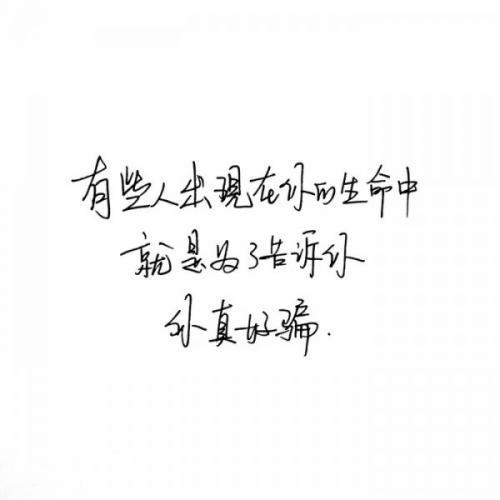 有些人出現在你的生命中
就是为了告诉你
你真好骗.